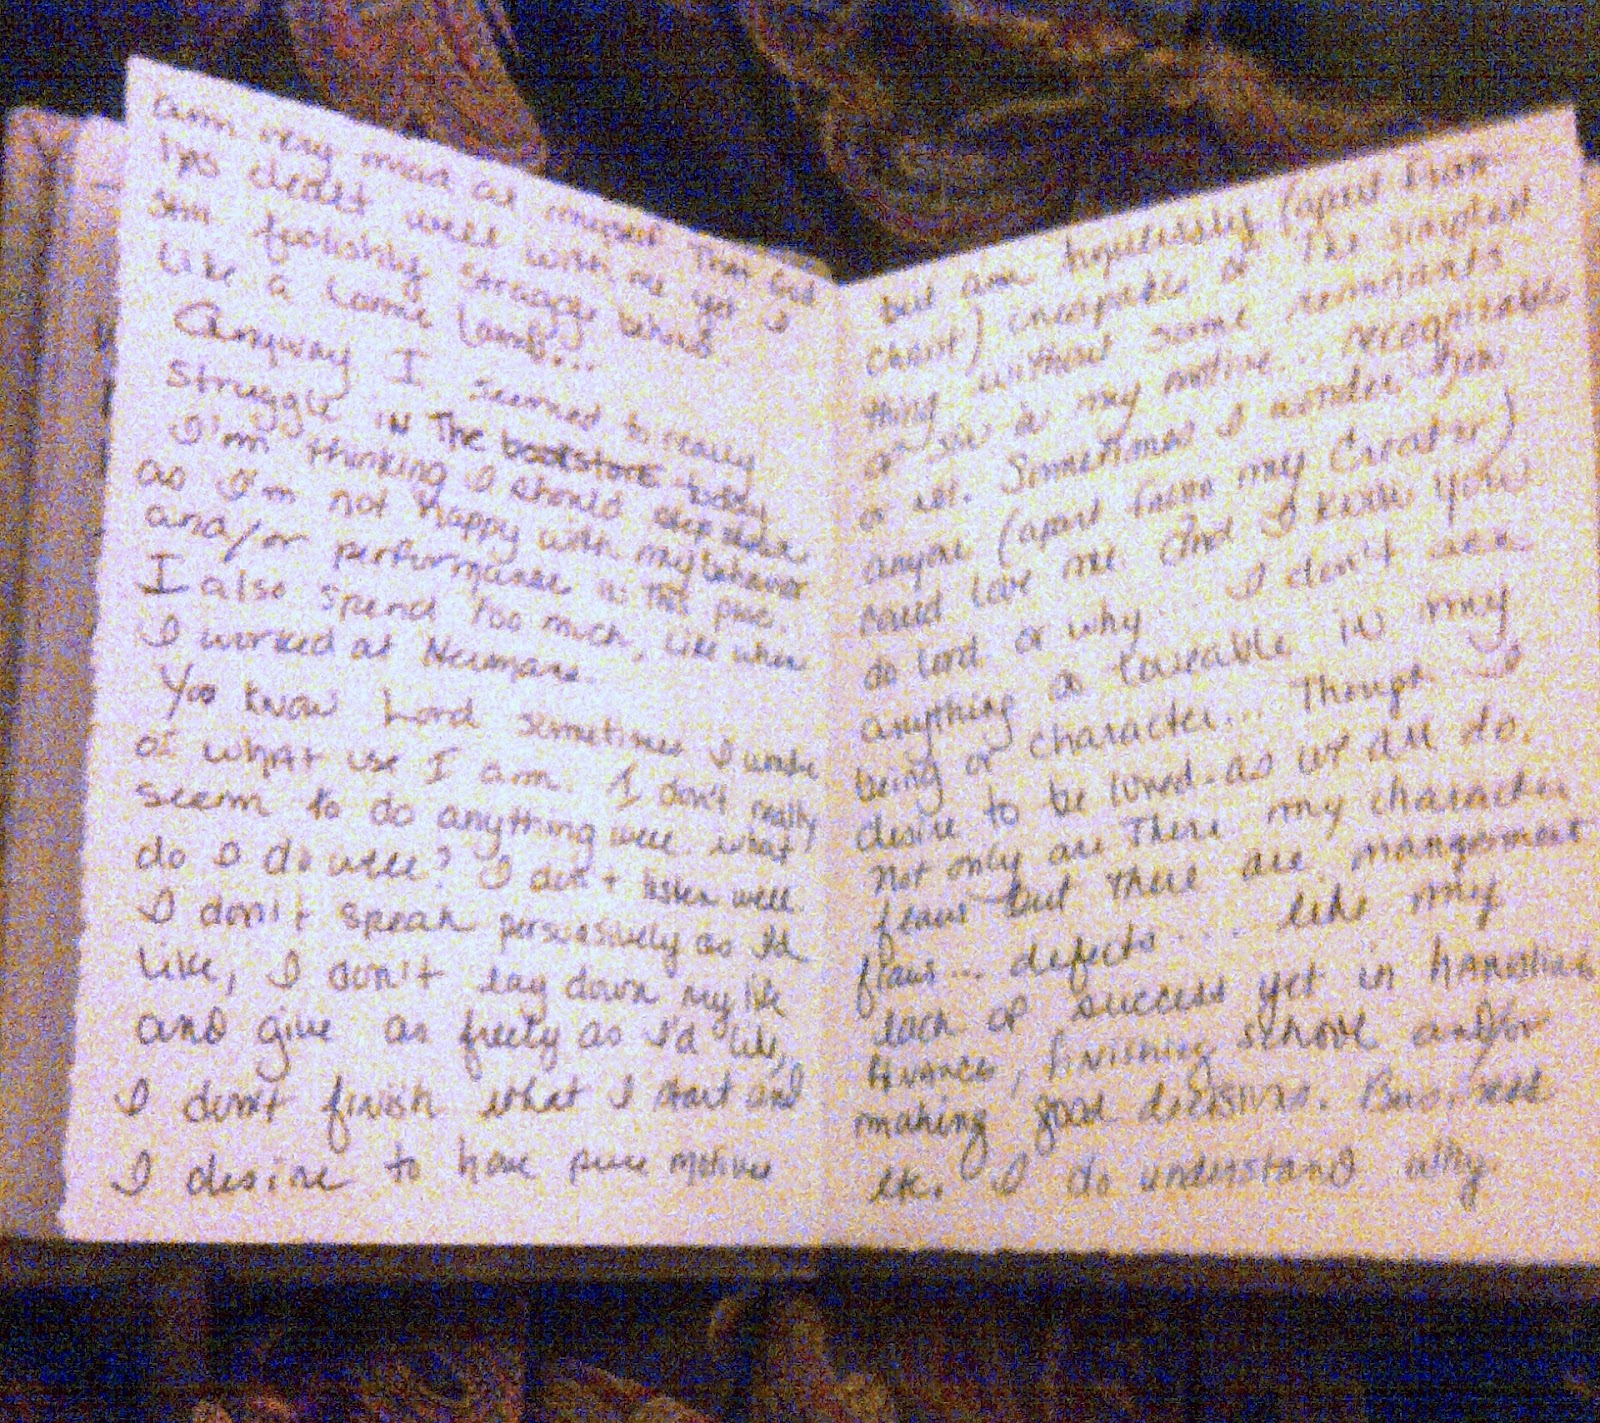 am very much at
has dealt well with me yet I
still foolishly struggle
like a lame lamb...
Anyway I seemed to really
struggle in The bookstore today
I'm thinking I should
as I'm not happy with my behavior
and/or performance in this
I also spend too much, like when
I worked at Newmans.
You know Lord sometimes I wonder
of what use I am. I don't really
seem to do anything well. what
do I do well? I don't listen well.
I don't speak persuasively as I'd
like, I don't lay down my life
and give as freely as I'd like,
I don't finish what I start and
I desire to have pure motives
but am hopelessly (apart from
Christ) incapable of The simplest
thing without some remnants
of sin in my motive... recognizable
or not. Sometimes I wonder how
anyone (apart from my Creator)
could love me and I know You
do Lord or why... I don't see
anything loveable in my
being or character... Though I
desire to be loved - as we all do.
Not only are There my character
flaws but there are management
flaws... defects... like my
lack of success yet in handling
finances, finishing school and/or
making good decisions.
etc. I do understand why